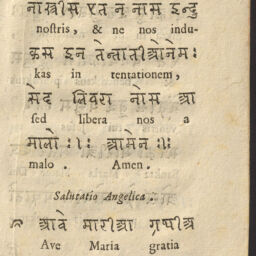 नोस्त्रीस एत न नोस इन्दु
nostris, & ne nos indu-
कास इन तेन्तातीओनेम :
kas in tentationem,
सेद लिबेरा नोस आ
sed libera nos a
मालो : । : आमेन : । :
malo . Amen .
Salutatio Angelica .
आवे मारीआ ग्राषीआ
Ave Maria gratia